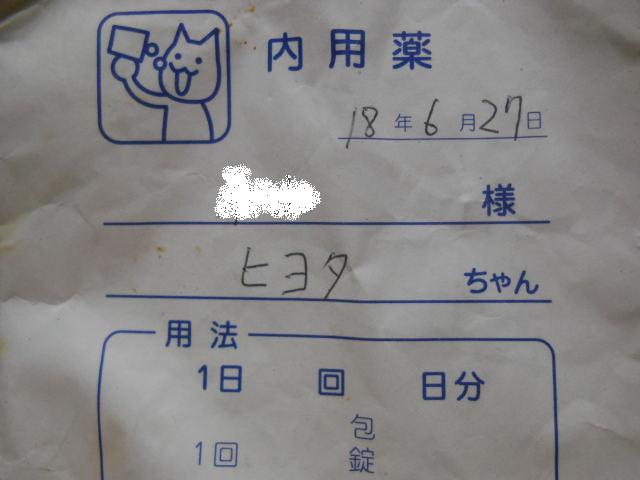 内用薬
18年6月27日
様
ヒヨタ ちゃん
用法
1日 回 日分
包
1回
錠